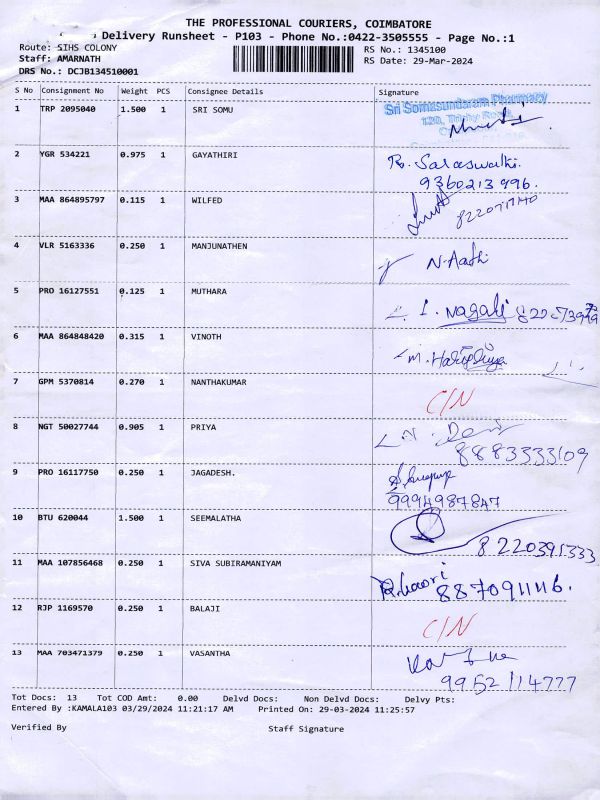 THE PROFESSIONAL COURIERS, COIMBATORE
Delivery Runsheet - P103 - Phone No.:0422-3505555 - Page No.:1
Route: SIHS COLONY RS No.: 1345100
Staff: AMARNATH RS Date: 29-Mar-2024
DRS No.: DCJB134510001
S No Consignment No Weight PCS Consignee Details Signature
1 TRP 2095040 1.500 1 SRI SOMU Sri Somasundaram Pharmacy
2 YGR 534221 0.975 1 GAYATHIRI R. Saraswathi.
9360213996.
3 MAA 864895797 0.115 1 WILFED
4 VLR 5163336 0.250 1 MANJUNATHEN N. Aathi
5 PRO 16127551 0.125 1 MUTHARA
6 MAA 864848420 0.315 1 VINOTH
7 GPM 5370814 0.270 1 NANTHAKUMAR C/N
8 NGT 50027744 0.905 1 PRIYA
8883333109
9 PRO 16117750 0.250 1 JAGADESH.
9994987847
10 BTU 620044 1.500 1 SEEMALATHA
8220391333
11 MAA 107856468 0.250 1 SIVA SUBIRAMANIYAM
12 RJP 1169570 0.250 1 BALAJI C/N
13 MAA 703471379 0.250 1 VASANTHA
9952114777
Tot Docs: 13 Tot COD Amt: 0.00 Delvd Docs: Non Delvd Docs: Delvy Pts:
Entered By :KAMALA103 03/29/2024 11:21:17 AM Printed On: 29-03-2024 11:25:57
Verified By Staff Signature